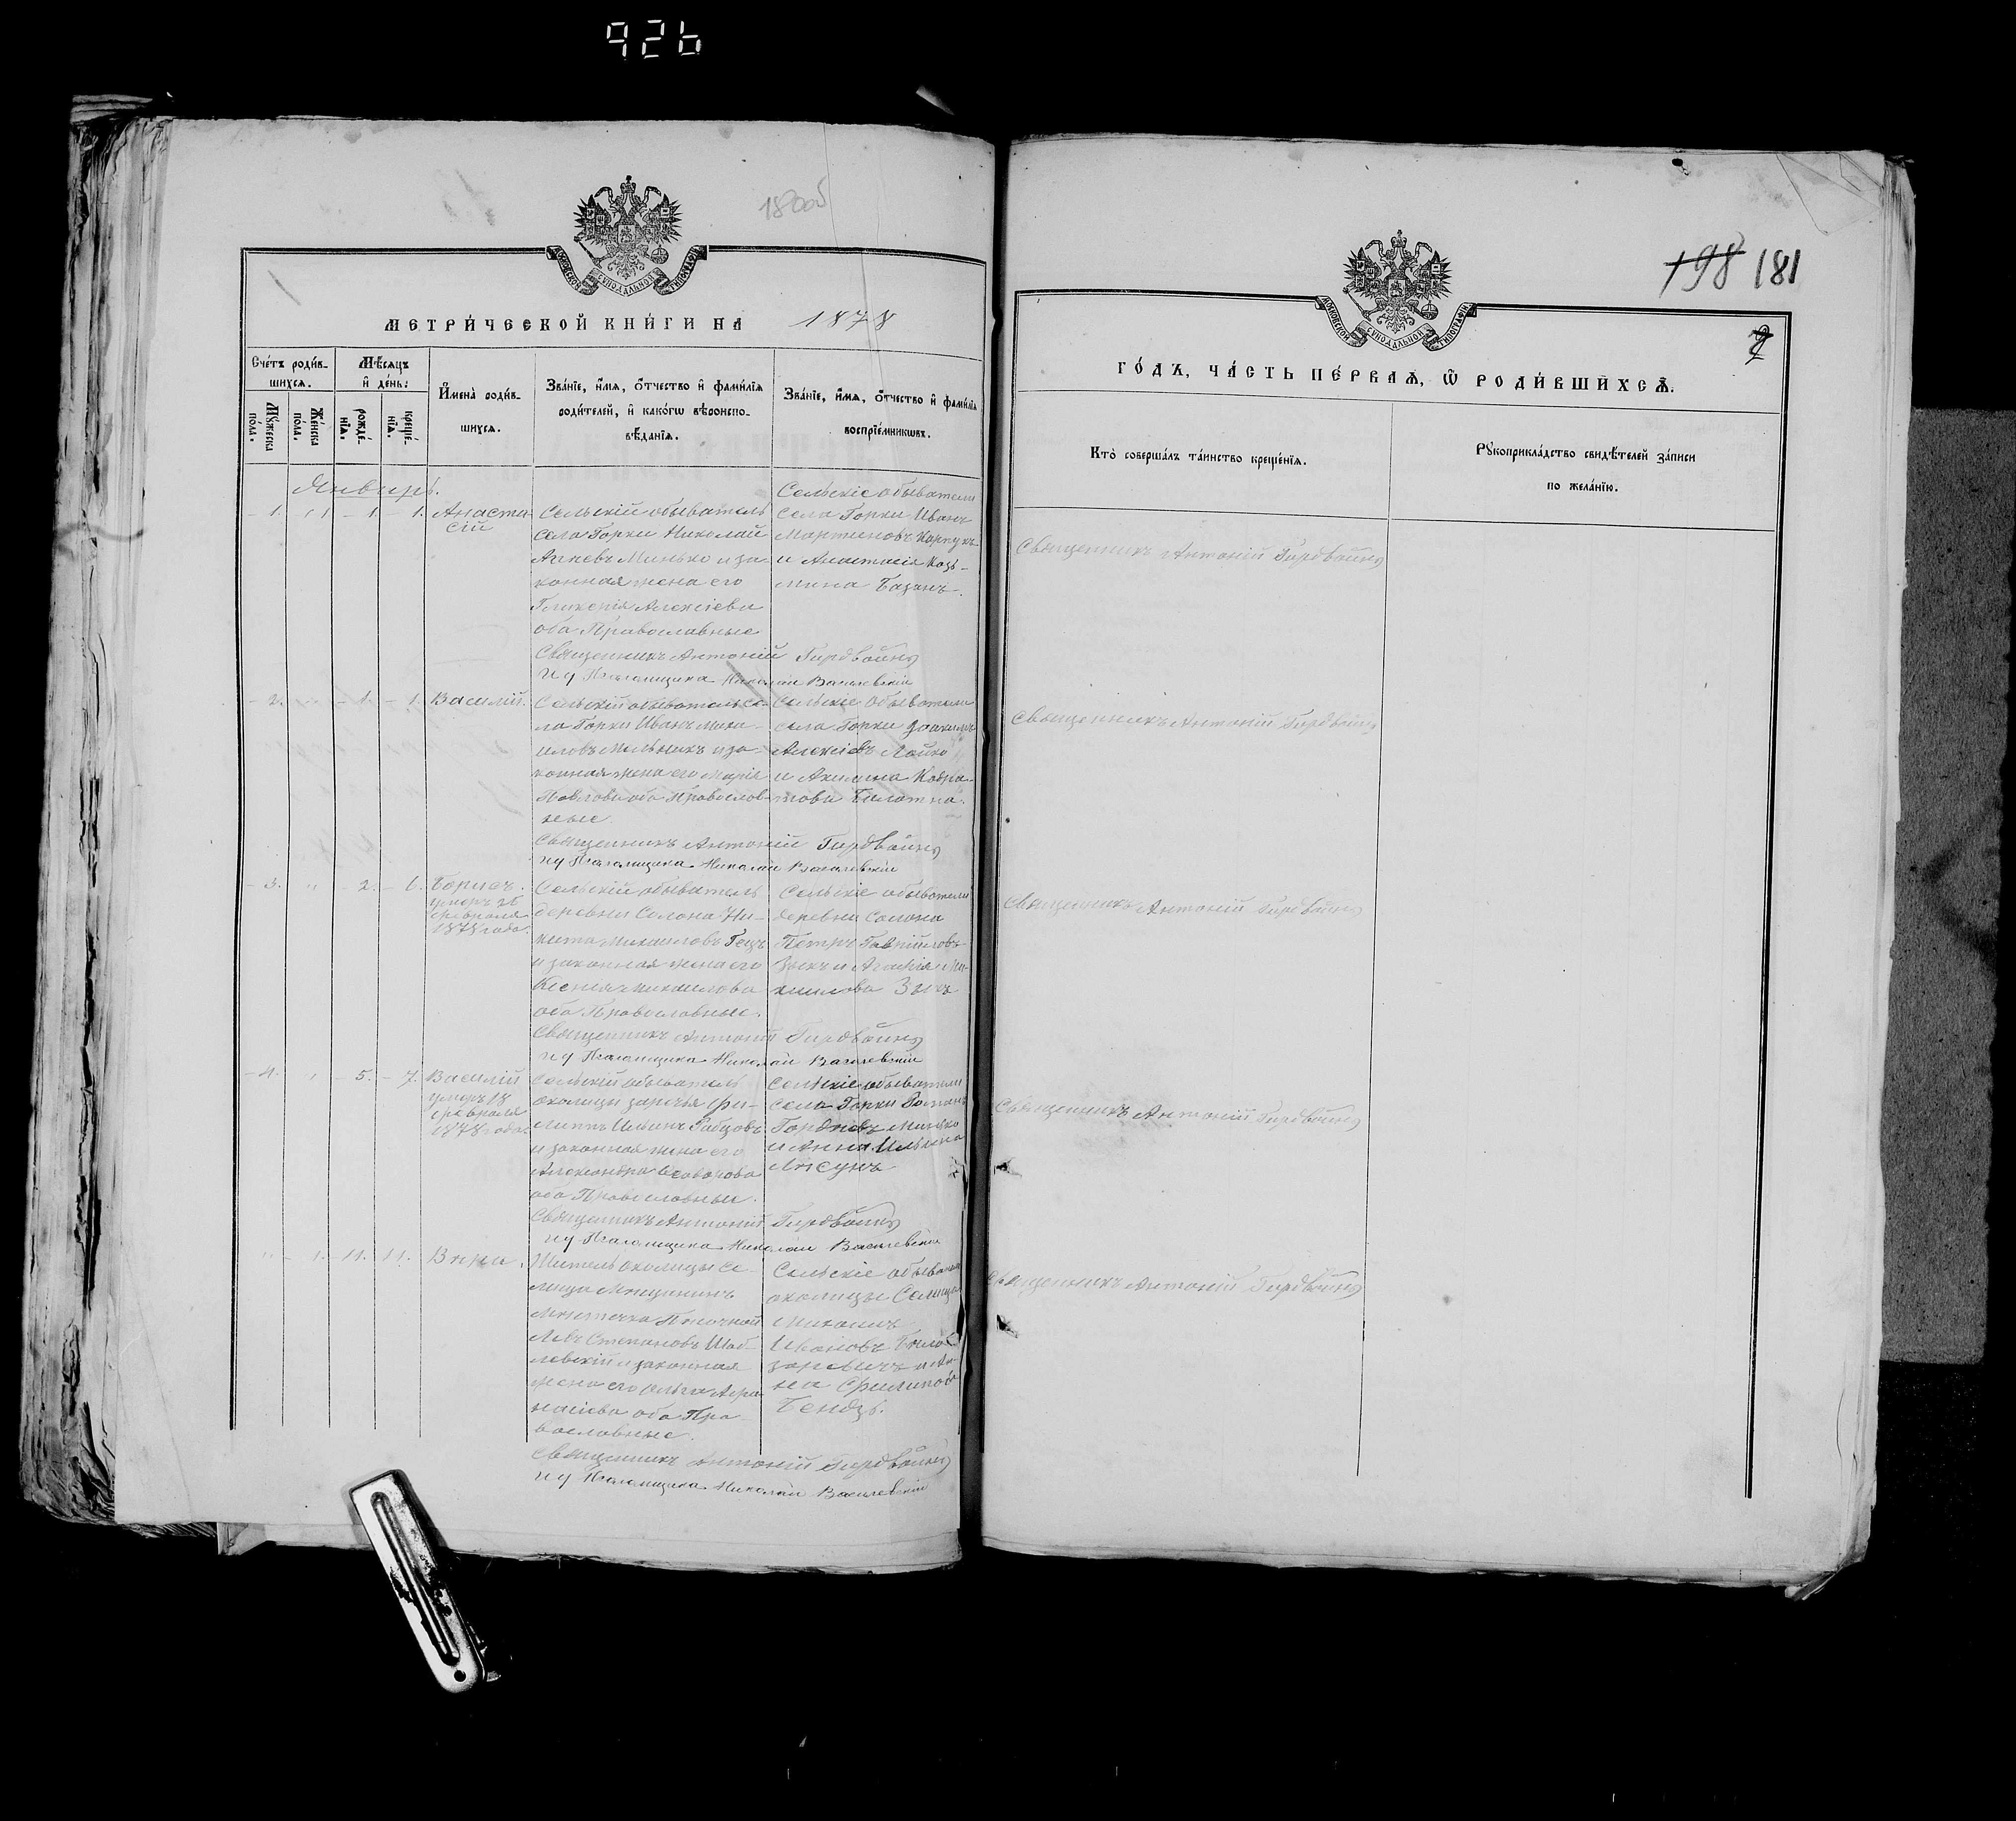 926
18005
198 181
2
МОСКОВСКОЙ СѴНОДАЛЬНОЙ ТИПОГРАФІИ
МЕТРИ́ЧЕСКОЙ КНИ́ГИ НА 1878
Сче́тъ роди́в-
шихся.
Мѣ́сяцъ
и҆ де́нь:
И҆мена̀ роди́в-
шихся.
Зва́нїе, и҆́мя, ѻ҆́тчество и҆ фами́лїя
роди́телей, и҆ како́гѡ вѣроиспо-
вѣ́данїя.
Зва́нїе, и҆́мя, ѻ҆́тчество и҆ фами́лїя
воспрїе́мникѡвъ.
Мꙋ́жеска
по́ла.
Же́нска
по́ла.
рожде́-
нїя.
креще́-
нїя.
Январь.
1. 1. 1. Анаста-
сій
Сельскій обыватель
села Горки Николай
Минько и за-
конная жена его
Гликерія Алексіева
оба Православные
Сельскіе обыватели
села Горки Иванъ
Мартиновъ Карпукъ
и Анастасія Козь-
мина Базанъ.
Священникъ Антоній Гирдвойнъ
И д Псаломщика Николай Василевскій
2. 1. 1. Василій.
Сельскій обыватель се-
ла Горки Иванъ Миха-
иловъ Мельникъ и за-
конная жена его Марія
Павлова оба Православ-
ные.
Сельскіе обыватели
села Горки Іоакимъ
Алексіевъ Лойко
и Акилина Кодра-
това
Священникъ Антоній Гирдвойнъ
И д Псаломщика Николай Василевскій
3. 2. 6. Борисъ.
умеръ 26
февраля
1878 года.
Сельскій обыватель
деревни Солона Ни-
кита Михаиловъ Гецъ
и законная жена его
Ксенія Михаилова
оба Православные.
Сельскіе обыватели
деревни Солона
Петръ
Зыкъ и Агафія Ми-
хаилова Зыкъ
Священникъ Антоній Гирдвойнъ
И д Псаломщика Николай Василевскій
4. 5. 7. Василій
умеръ 18
февраля
1878 года.
Сельскій обыватель
околицы Заречья Фи-
липпъ Ильинъ Рабцовъ
и законная жена его
Александра
оба Православные.
Сельскіе обыватели
села Горки Романъ
Гордіевъ Минько
и Анна Ильина
Священникъ Антоній Гирдвойнъ
И д Псаломщика Николай Василевскій
1. 11. 11. Вѣра.
Житель околицы Се-
лища Мещанинъ
мѣстечка
Левъ Степановъ Шаб-
левскій и законная
жена его Ольга Афа-
насіева оба Пра-
вославные.
Сельскіе обыватели
околицы Селища
Михаилъ
Ивановъ Бѣло-
заровичъ и Ан-
на Филипова
Бендзь.
Священникъ Антоній Гирдвойнъ
И д Псаломщика Николай Василевскій
МОСКОВСКОЙ СѴНОДАЛЬНОЙ ТИПОГРАФІИ
ГО́ДЪ, ЧА́СТЬ ПЕ́РВАЯ, Ѡ҆ РОДИ́ВШИХСЯ.
Кто̀ соверша́лъ та́инство креще́нїя.
Рꙋкоприкла́дство свидѣ́телей за́писи
по жела́нїю.
Священникъ Антоній Гирдвойнъ
Священникъ Антоній Гирдвойнъ
Священникъ Антоній Гирдвойнъ
Священникъ Антоній Гирдвойнъ
Священникъ Антоній Гирдвойнъ